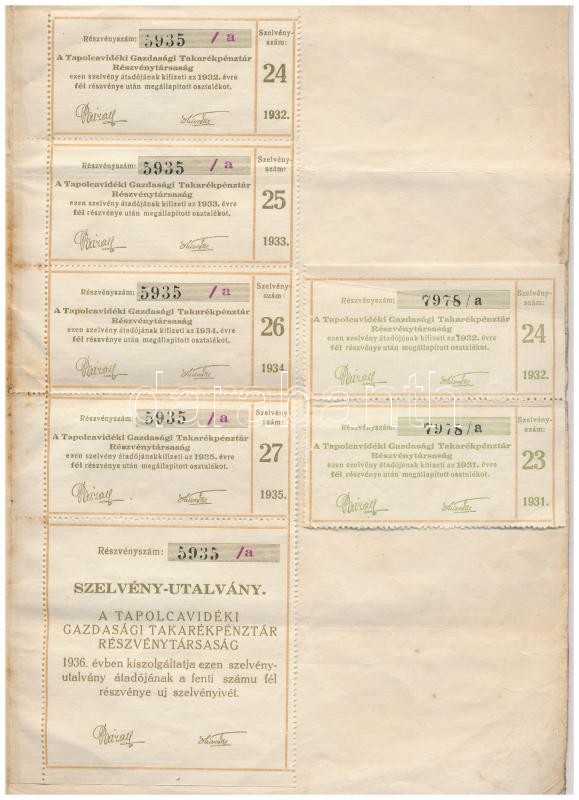 Részvényszám: 5935 /a
Szelvény-
szám:
A Tapolcavidéki Gazdasági Takarékpénztár
Részvénytársaság
ezen szelvény átadójának kifizeti az 1932. évre
fél részvénye után megállapitott osztalékot.
24
1932.
Részvényszám: 5935 /a
Szelvény-
szám:
A Tapolcavidéki Gazdasági Takarékpénztár
Részvénytársaság
ezen szelvény átadójának kifizeti az 1933. évre
fél részvénye után megállapitott osztalékot.
25
1933.
Részvényszám: 5935 /a
Szelvény-
szám:
A Tapolcavidéki Gazdasági Takarékpénztár
Részvénytársaság
ezen szelvény átadójának kifizeti az 1934. évre
fél részvénye után megállapitott osztalékot.
26
1934
Részvényszám: 5935 /a
Szelvény-
szám:
A Tapolcavidéki Gazdasági Takarékpénztár
Részvénytársaság
ezen szelvény átadójának kifizeti az 1935. évre
fél részvénye után megállapitott osztalékot.
27
1935.
Részvényszám: 5935 /a
SZELVÉNY-UTALVÁNY.
A TAPOLCAVIDÉKI
GAZDASÁGI TAKARÉKPÉNZTÁR
RÉSZVÉNYTÁRSASÁG
1936. évben kiszolgáltatja ezen szelvény-
utalvány átadójának a fenti számu fél
részvénye uj szelvényivét.
Részvényszám: 7978/a
Szelvény-
szám:
A Tapolcavidéki Gazdasági Takarékpénztár
Részvénytársaság
ezen szelvény átadójának kifizeti az 1932. évre
fél részvénye után megállapitott osztalékot.
24
1932.
Részvényszám: 7978/a
Szelvény-
szám:
A Tapolcavidéki Gazdasági Takarékpénztár
Részvénytársaság
ezen szelvény átadójának kifizeti az 1931. évre
fél részvénye után megállapitott osztalékot.
23
1931.
darabanth